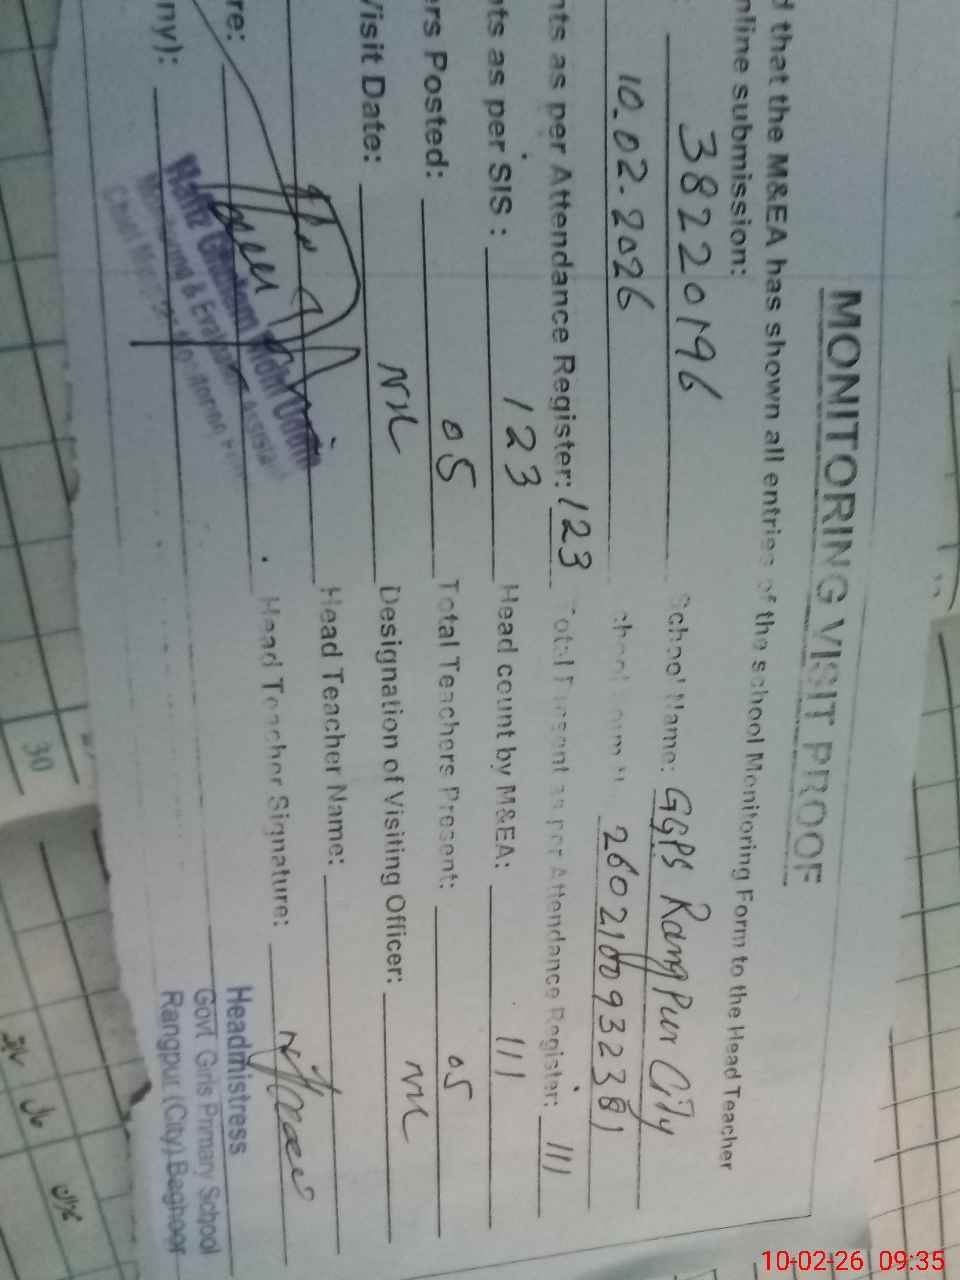 MONITORING VISIT PROOF
d that the M&EA has shown all entries of the school Monitoring Form to the Head Teacher
nline submission:
38220196 School Name: GGPS Rangpur City
10.02.2026
nts as per Attendance Register: 123 Total Present as per Attendance Register: 111
nts as per SIS : 123 Head count by M&EA: 111
ers Posted: 05 Total Teachers Present: 05
Visit Date: NIL Designation of Visiting Officer: NIL
Head Teacher Name:
re: Head Teacher Signature:
ny):
Headmistress
Govt Girls Primary School
Rangpur (City) Baghoor
30
10-02-26 09:35